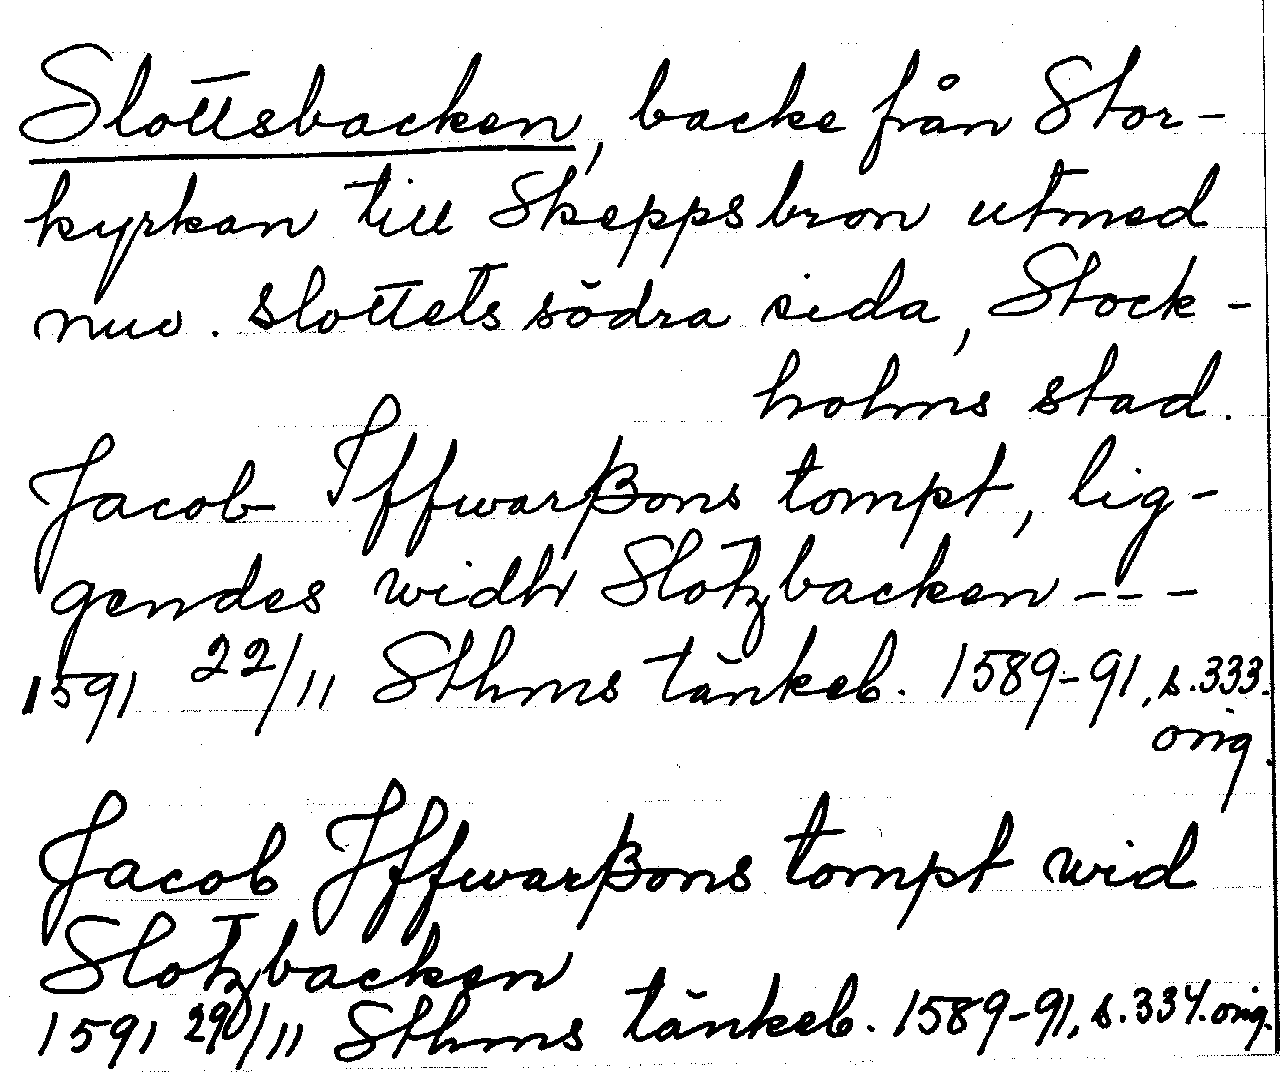 Slottsbacken, backe från Stor-
kyrkan till Skeppsbron utmed
nuv. slottets södra sida, Stock-
holms stad.
Jacob Iffwarßons tompt, lig-
gendes widh Slotzbacken ---
1591 22/11 Sthms tänkeb. 1589-91, s.333.
orig.
Jacob Iffwarßons tompt wid
Slotzbacken
1591 29/11 Sthms tänkeb. 1589-91, s.334. orig.